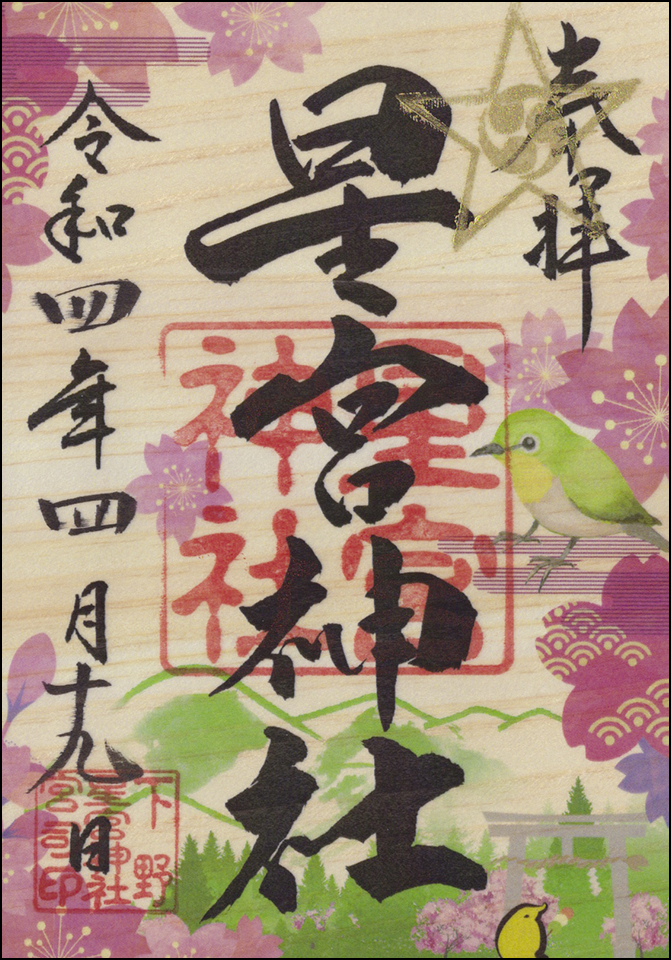 奉拝
星宮神社
星宮
神社
令和四年四月十九日
下野
星宮神社
宮司印